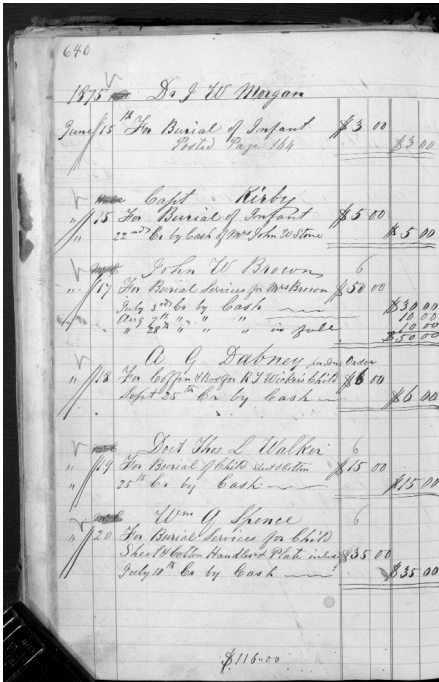 640
1875 Dr J W Morgan
June 15th For Burial of Infant $3 00
Posted Page 164 $3 00
Capt Kirby
" 15 For Burial of Infant $5 00
" 22nd Cr by Cash of Mrs John W Stone $5 00
John W Brown 6
" 17 For Burial Services for Mrs Brown $50 00
July 3rd Cr by Cash $30 00
Aug 7th " " " 10 00
" 28th " " " in full 10 00
$50 00
A G Dabney Order
" 18 For Coffin & Box for R T Wickers Child $6 00
Sept 25th Cr by Cash $6 00
Doct Thos L Walker 6
" 19 For Burial of Child $15 00
" 25th Cr by Cash $15 00
Wm G Spence 6
" 20 For Burial Services for Child
Sheet & Cotton Handles & Plate $35 00
July 10th Cr by Cash $35 00
$116.00